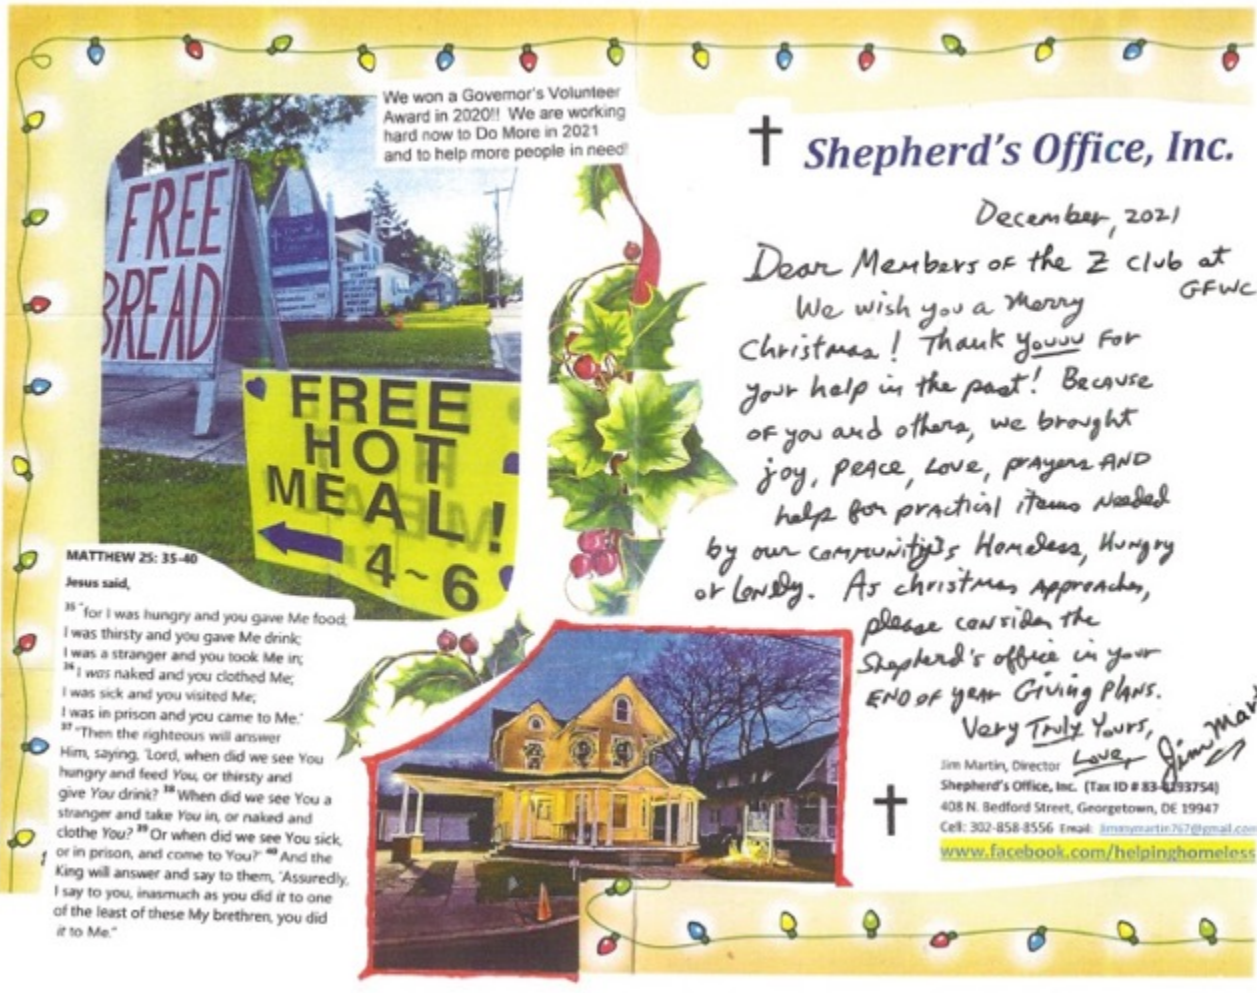 We won a Governor's Volunteer
Award in 2020!! We are working
hard now to Do More in 2021
and to help more people in need!
FREE
BREAD
FREE
HOT
MEAL!
4~6
MATTHEW 25: 35-40
Jesus said,
35 "for I was hungry and you gave Me food;
I was thirsty and you gave Me drink;
I was a stranger and you took Me in;
36 I was naked and you clothed Me;
I was sick and you visited Me;
I was in prison and you came to Me.'
37 "Then the righteous will answer
Him, saying, 'Lord, when did we see You
hungry and feed You, or thirsty and
give You drink? 38 When did we see You a
stranger and take You in, or naked and
clothe You? 39 Or when did we see You sick,
or in prison, and come to You?' 40 And the
King will answer and say to them, 'Assuredly,
I say to you, inasmuch as you did it to one
of the least of these My brethren, you did
it to Me."
Shepherd's Office, Inc.
December, 2021
Dear Members of the Z Club at
GFWC
We wish you a Merry
Christmas! Thank youuu for
your help in the past! Because
of you and others, we brought
joy, peace, love, prayers AND
help for practical items needed
by our community's Homeless, Hungry
or Lonely. As Christmas Approaches,
please consider the
Shepherd's office in your
END OF year Giving Plans.
Very Truly Yours,
Love,
Jim Martin
Jim Martin, Director
Shepherd's Office, Inc. (Tax ID # 83-
408 N. Bedford Street, Georgetown, DE 19947
Cell: 302-858-8556 Email: jimmymartin767@gmail.com
www.facebook.com/helpinghomeless